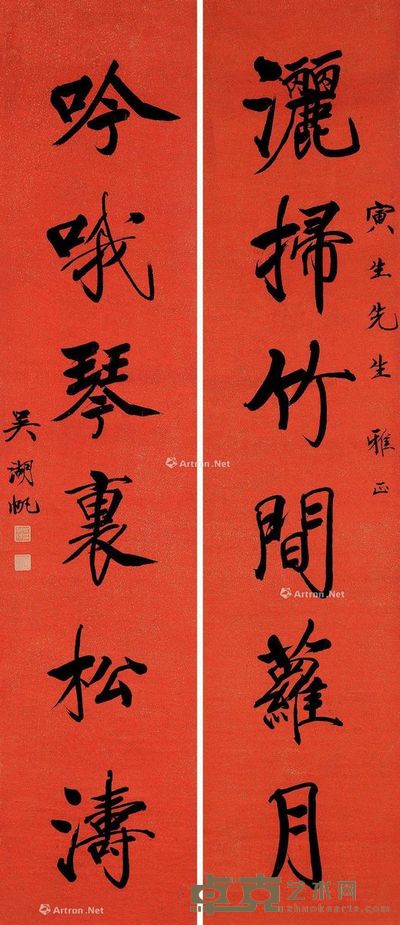 寅生先生 雅正
灑掃竹間蘿月
吟哦琴裏松濤
吳湖帆
Artron.Net
Artron.Net
Artron.Net
点点艺术网